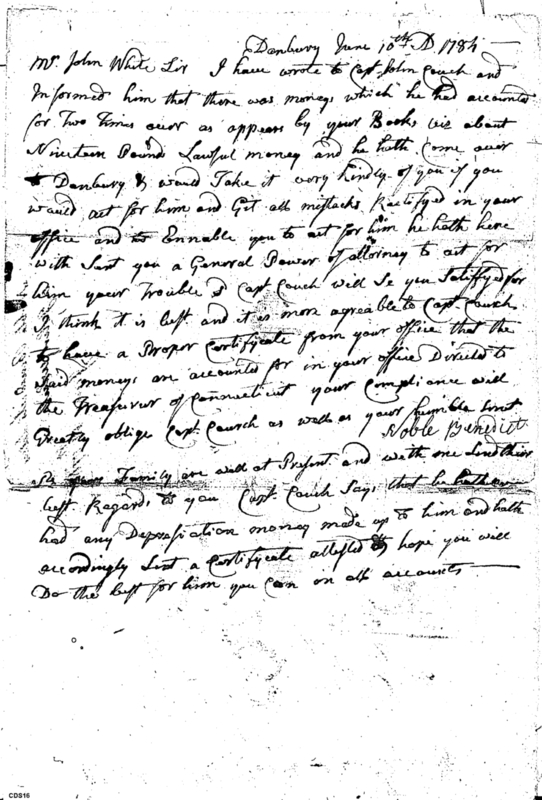 Danbury June 10th AD 1784
Mr. John White Sir I have wrote to Capt John Couch and
Informed him that there was moneys which he had accounted
for Two Times over as appears by your Books viz about
Nineteen Pounds Lawful money and he hath Come over
to Danbury & would Take it very kindly of you if you
would act for him and Get all mistacks Rectifyed in your
office and to Ennable you to act for him he hath here
with Sent you a General Power of attorney to act for
him your Trouble Capt Couch will Se you Satisfyed for
I think it is best and it is more agreeable to Capt. Couch
to have a Proper Certificate from your office that the
Said moneys are accounted for in your office Directed to
the Treasurer of Connecticut your Compliance will
Greatly oblige Capt. Couch as well as your humble Servt
Noble Benedict
Family are well at Present and with one Send their
best Regards to you Capt. Couch Says that he hath
had any Depresiation money made up to him and hath
accordingly Sent a Certificate attested hope you will
Do the best for him you Can on all accounts
CDS16